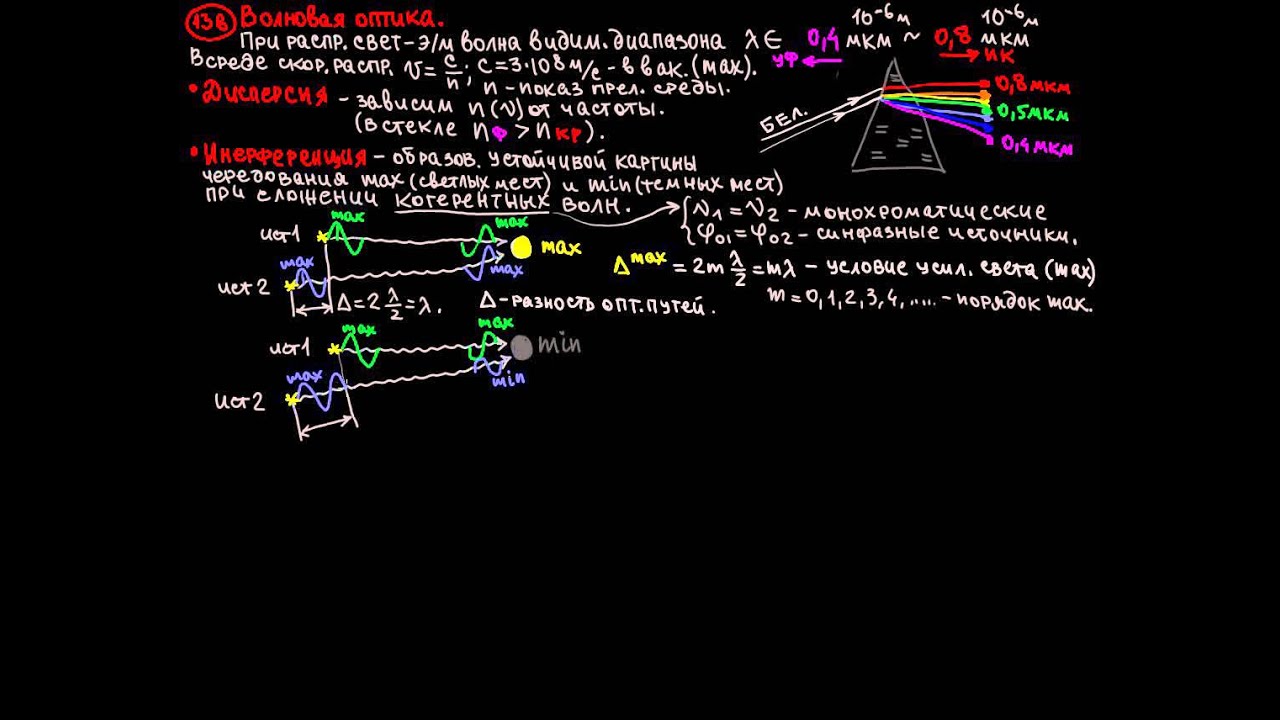 13в Волновая оптика.
При распр. свет – э/м волна видим. диапазона λ ∈ 0,4 мкм ~ 0,8 мкм
10⁻⁶ м 10⁻⁶ м
УФ ИК
В среде скор. распр. v = c/n ; c = 3·10⁸ м/с – в вак. (max).
n – показ прел. среды.
• Дисперсия – зависим n(ν) от частоты.
(в стекле nф > nкр).
БЕЛ.
0,8 мкм
0,5 мкм
0,4 мкм
• Инерференция – образов. устойчивой картины
чередования max (светлых мест) и min (темных мест)
при сложении когерентных волн.
ν₁ = ν₂ – монохроматические
φ₀₁ = φ₀₂ – синфазные источники.
ист 1 max max max
ист 2 max max
Δ = 2 λ/2 = λ. Δ – разность опт. путей.
Δᵐᵃˣ = 2m λ/2 = mλ – условие усил. света (max)
m = 0, 1, 2, 3, 4, .... – порядок max.
ист 1 max max min
ист 2 max min